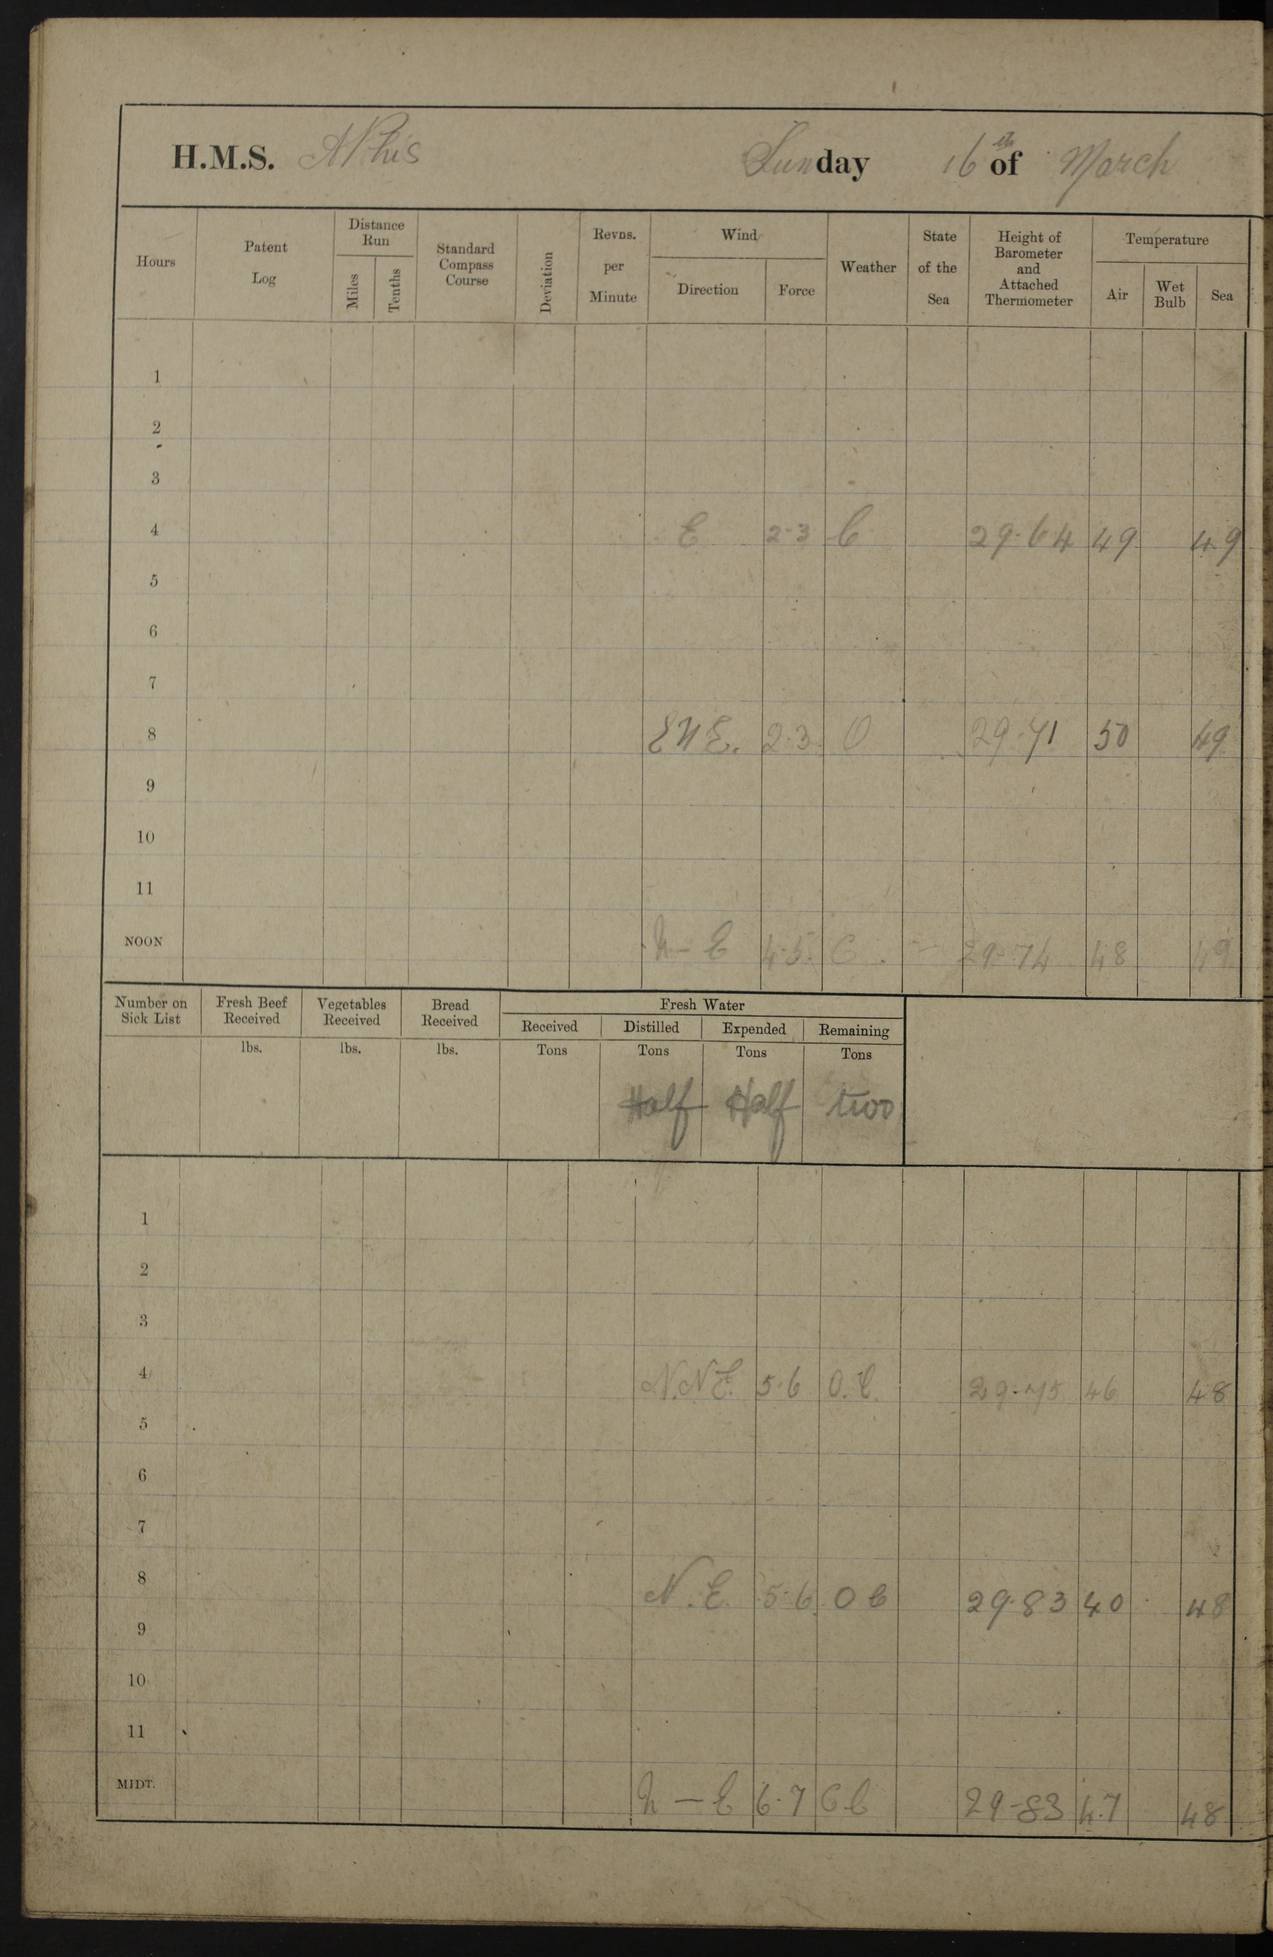 H.M.S. APhis Sunday 16th of March
Hours Patent Log Distance Run Miles Tenths Standard Compass Course Deviation Revns. per Minute Wind Direction Force Weather State of the Sea Height of Barometer and Attached Thermometer Temperature Air Wet Bulb Sea
1
2
3
4 E 2-3 b 29.64 49 49
5
6
7
8 ENE. 2-3 O 29.71 50 49
9
10
11
NOON N-E 4-5 C 29-74 48 49
Number on Sick List Fresh Beef Received Vegetables Received Bread Received Fresh Water
Received Distilled Expended Remaining
lbs. lbs. lbs. Tons Tons Tons Tons
Half Half two
1
2
3
4 N.NE. 5-6 O.C. 29.75 46 48
5
6
7
8 N.E. 5-6 O b 29.83 40 48
9
10
11
MIDT. N-E 6-7 C b 29-83 47 48